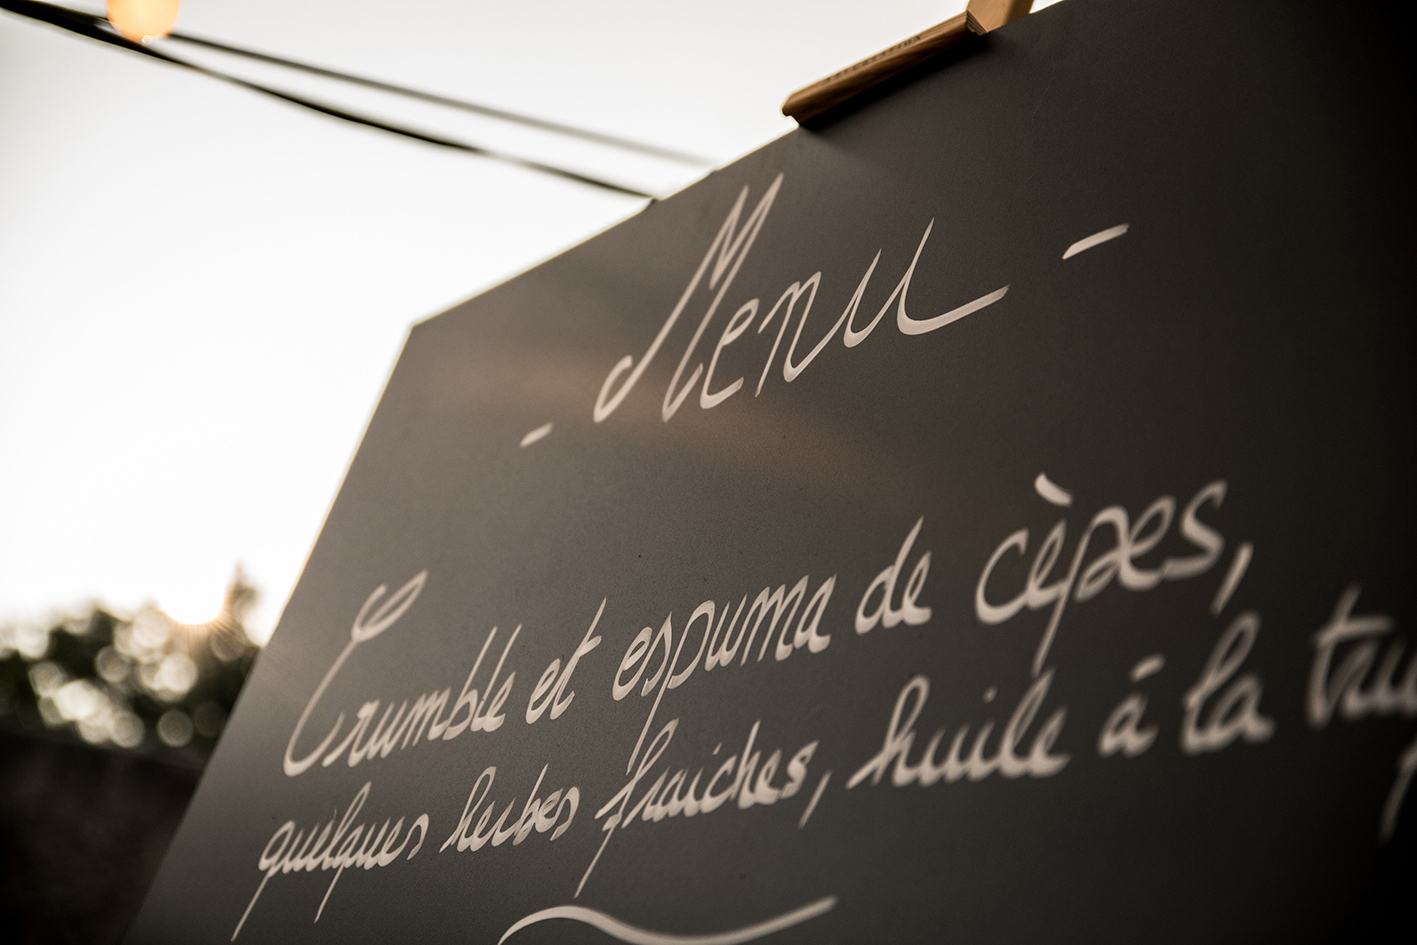 - Menu -
Crumble et espuma de cèpes,
quelques herbes fraiches, huile à la